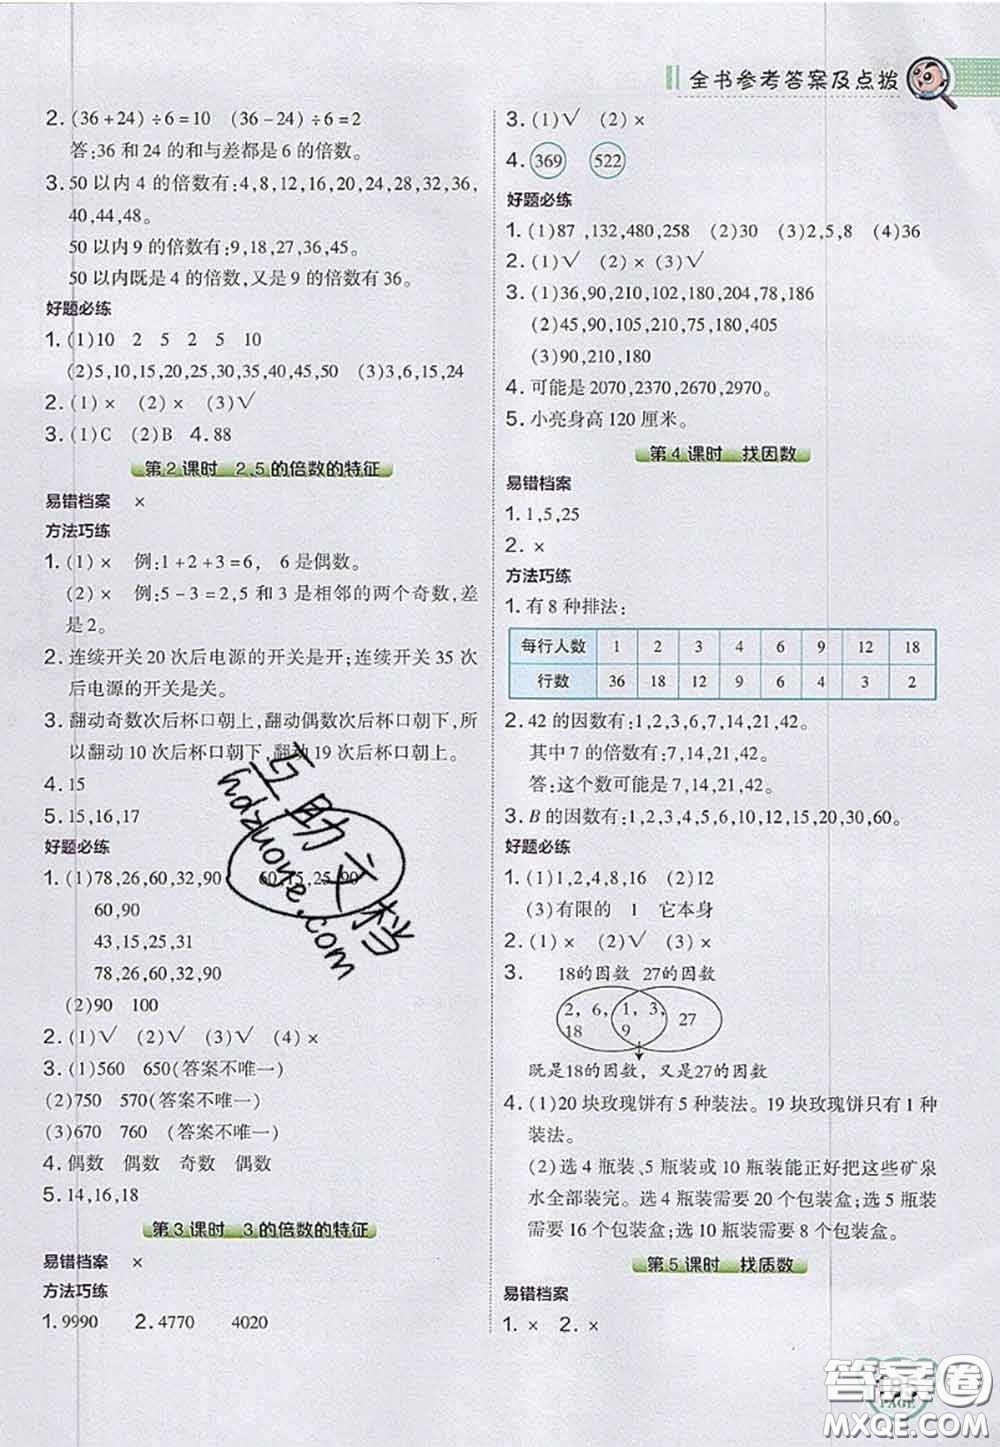 全书参考答案及点拨
2. (36+24)÷6=10 (36-24)÷6=2
答:36和24的和与差都是6的倍数。
3. 50以内4的倍数有:4,8,12,16,20,24,28,32,36,
40,44,48。
50以内9的倍数有:9,18,27,36,45。
50以内既是4的倍数,又是9的倍数有36。
好题必练
1. (1)10 2 5 2 5 10
(2)5,10,15,20,25,30,35,40,45,50 (3)3,6,15,24
2. (1)× (2)× (3)√
3. (1)C (2)B 4. 88
第2课时 2,5的倍数的特征
易错档案 ×
方法巧练
1. (1)× 例:1+2+3=6, 6是偶数。
(2)× 例:5-3=2,5和3是相邻的两个奇数,差
是2。
2. 连续开关20次后电源的开关是开;连续开关35次
后电源的开关是关。
3. 翻动奇数次后杯口朝上,翻动偶数次后杯口朝下,所
以翻动10次后杯口朝下,翻动19次后杯口朝上。
4. 15
5. 15,16,17
好题必练
1. (1)78,26,60,32,90 60,15,25,90
60,90
43,15,25,31
78,26,60,32,90
(2)90 100
2. (1)√ (2)√ (3)√ (4)×
3. (1)560 650(答案不唯一)
(2)750 570(答案不唯一)
(3)670 760 (答案不唯一)
4. 偶数 偶数 奇数 偶数
5. 14,16,18
第3课时 3的倍数的特征
易错档案 ×
方法巧练
1. 9990 2. 4770 4020
3. (1)√ (2)×
4. 369 522
好题必练
1. (1)87 ,132,480,258 (2)30 (3)2,5,8 (4)36
2. (1)√ (2)× (3)√
3. (1)36,90,210,102,180,204,78,186
(2)45,90,105,210,75,180,405
(3)90,210,180
4. 可能是2070,2370,2670,2970。
5. 小亮身高120厘米。
第4课时 找因数
易错档案
1. 1,5,25
2. ×
方法巧练
1. 有8种排法:
每行人数 1 2 3 4 6 9 12 18
行数 36 18 12 9 6 4 3 2
2. 42的因数有:1,2,3,6,7,14,21,42。
其中7的倍数有:7,14,21,42。
答:这个数可能是7,14,21,42。
3. B的因数有:1,2,3,4,5,6,10,12,15,20,30,60。
好题必练
1. (1)1,2,4,8,16 (2)12
(3)有限的 1 它本身
2. (1)× (2)√ (3)×
3. 18的因数 27的因数
2, 6, 1, 3, 27
18 9
既是18的因数,又是27的因数
4. (1)20块玫瑰饼有5种装法。19块玫瑰饼只有1种
装法。
(2)选4瓶装、5瓶装或10瓶装能正好把这些矿泉
水全部装完。选4瓶装需要20个包装盒;选5瓶装
需要16个包装盒;选10瓶装需要8个包装盒。
第5课时 找质数
易错档案
1. × 2. ×
互助文档
hdzuoye.com
PAGE
答案圈
MXQE.COM